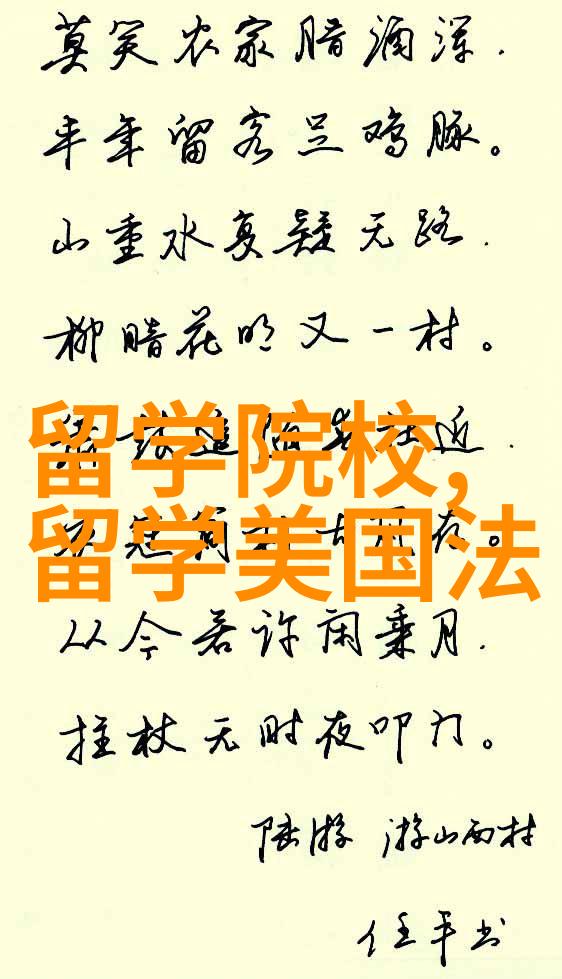 莫笑农家腊酒浑.
丰年留客足鸡豚。
山重水复疑无路.
柳暗花明又一村。
留学院校,
追 社近.
留学美国法
存。
从今若许闲乘月.
拄杖无时夜叩门。
陆游 游山西村
任平书